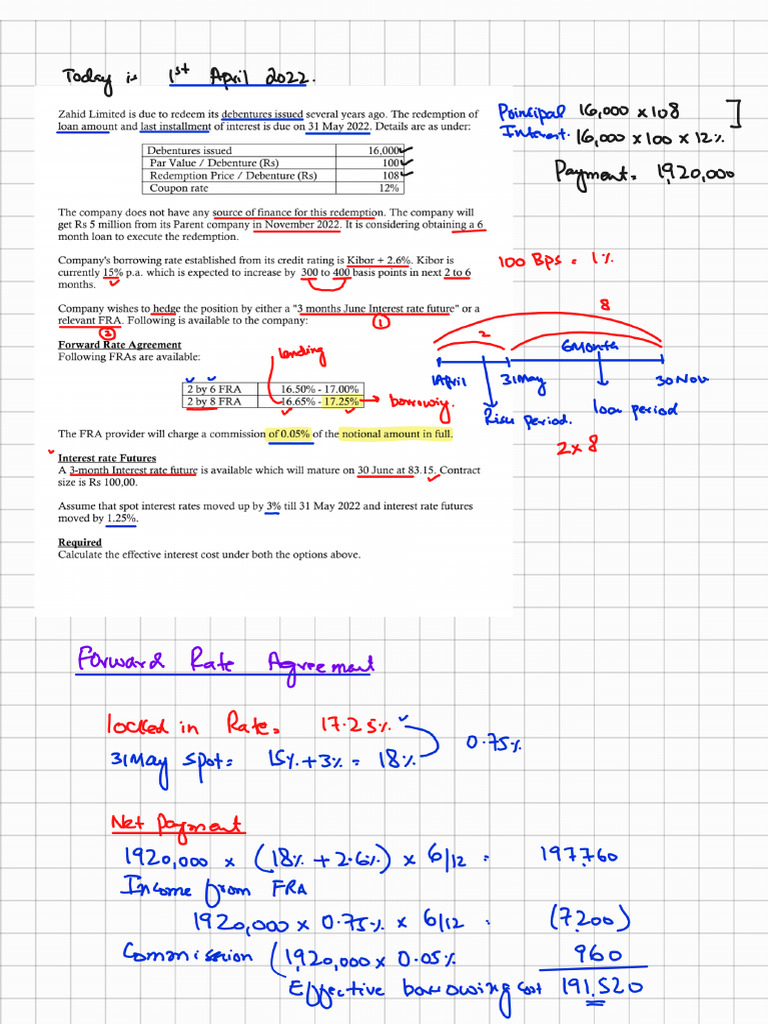 Today is 1st April 2022.
Zahid Limited is due to redeem its debentures issued several years ago. The redemption of
loan amount and last installment of interest is due on 31 May 2022. Details are as under:
Debentures issued 16,000
Par Value / Debenture (Rs) 100
Redemption Price / Debenture (Rs) 108
Coupon rate 12%
Principal 16,000 x 108
Interest. 16,000 x 100 x 12%
Payment = 1,920,000
The company does not have any source of finance for this redemption. The company will
get Rs 5 million from its Parent company in November 2022. It is considering obtaining a 6
month loan to execute the redemption.
Company's borrowing rate established from its credit rating is Kibor + 2.6%. Kibor is
currently 15% p.a. which is expected to increase by 300 to 400 basis points in next 2 to 6
months.
100 Bps = 1%
Company wishes to hedge the position by either a "3 months June Interest rate future" or a
relevant FRA. Following is available to the company:
1
2
Forward Rate Agreement
Following FRAs are available:
lending
2 by 6 FRA 16.50% - 17.00%
2 by 8 FRA 16.65% - 17.25%
borrowing.
8
2
6Month
1April 31May 30Nov
Risk period. loan period
2x8
The FRA provider will charge a commission of 0.05% of the notional amount in full.
Interest rate Futures
A 3-month Interest rate future is available which will mature on 30 June at 83.15. Contract
size is Rs 100,00.
Assume that spot interest rates moved up by 3% till 31 May 2022 and interest rate futures
moved by 1.25%.
Required
Calculate the effective interest cost under both the options above.
Forward Rate Agreement
locked in Rate = 17.25%
31May spot = 15% + 3% = 18%
0.75%
Net Payment
1920,000 x (18% + 2.6%) x 6/12 = 197760
Income from FRA
1920,000 x 0.75% x 6/12 = (7200)
Commission (1,920,000 x 0.05% 960
Effective borrowing cost 191,520